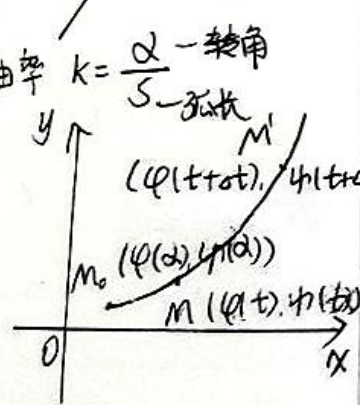 率 K = α/S —转角
—弧长
y
M'
(φ(t+Δt), ψ(t+
M₀ (φ(α), ψ(α))
M (φ(t), ψ(t))
O
x